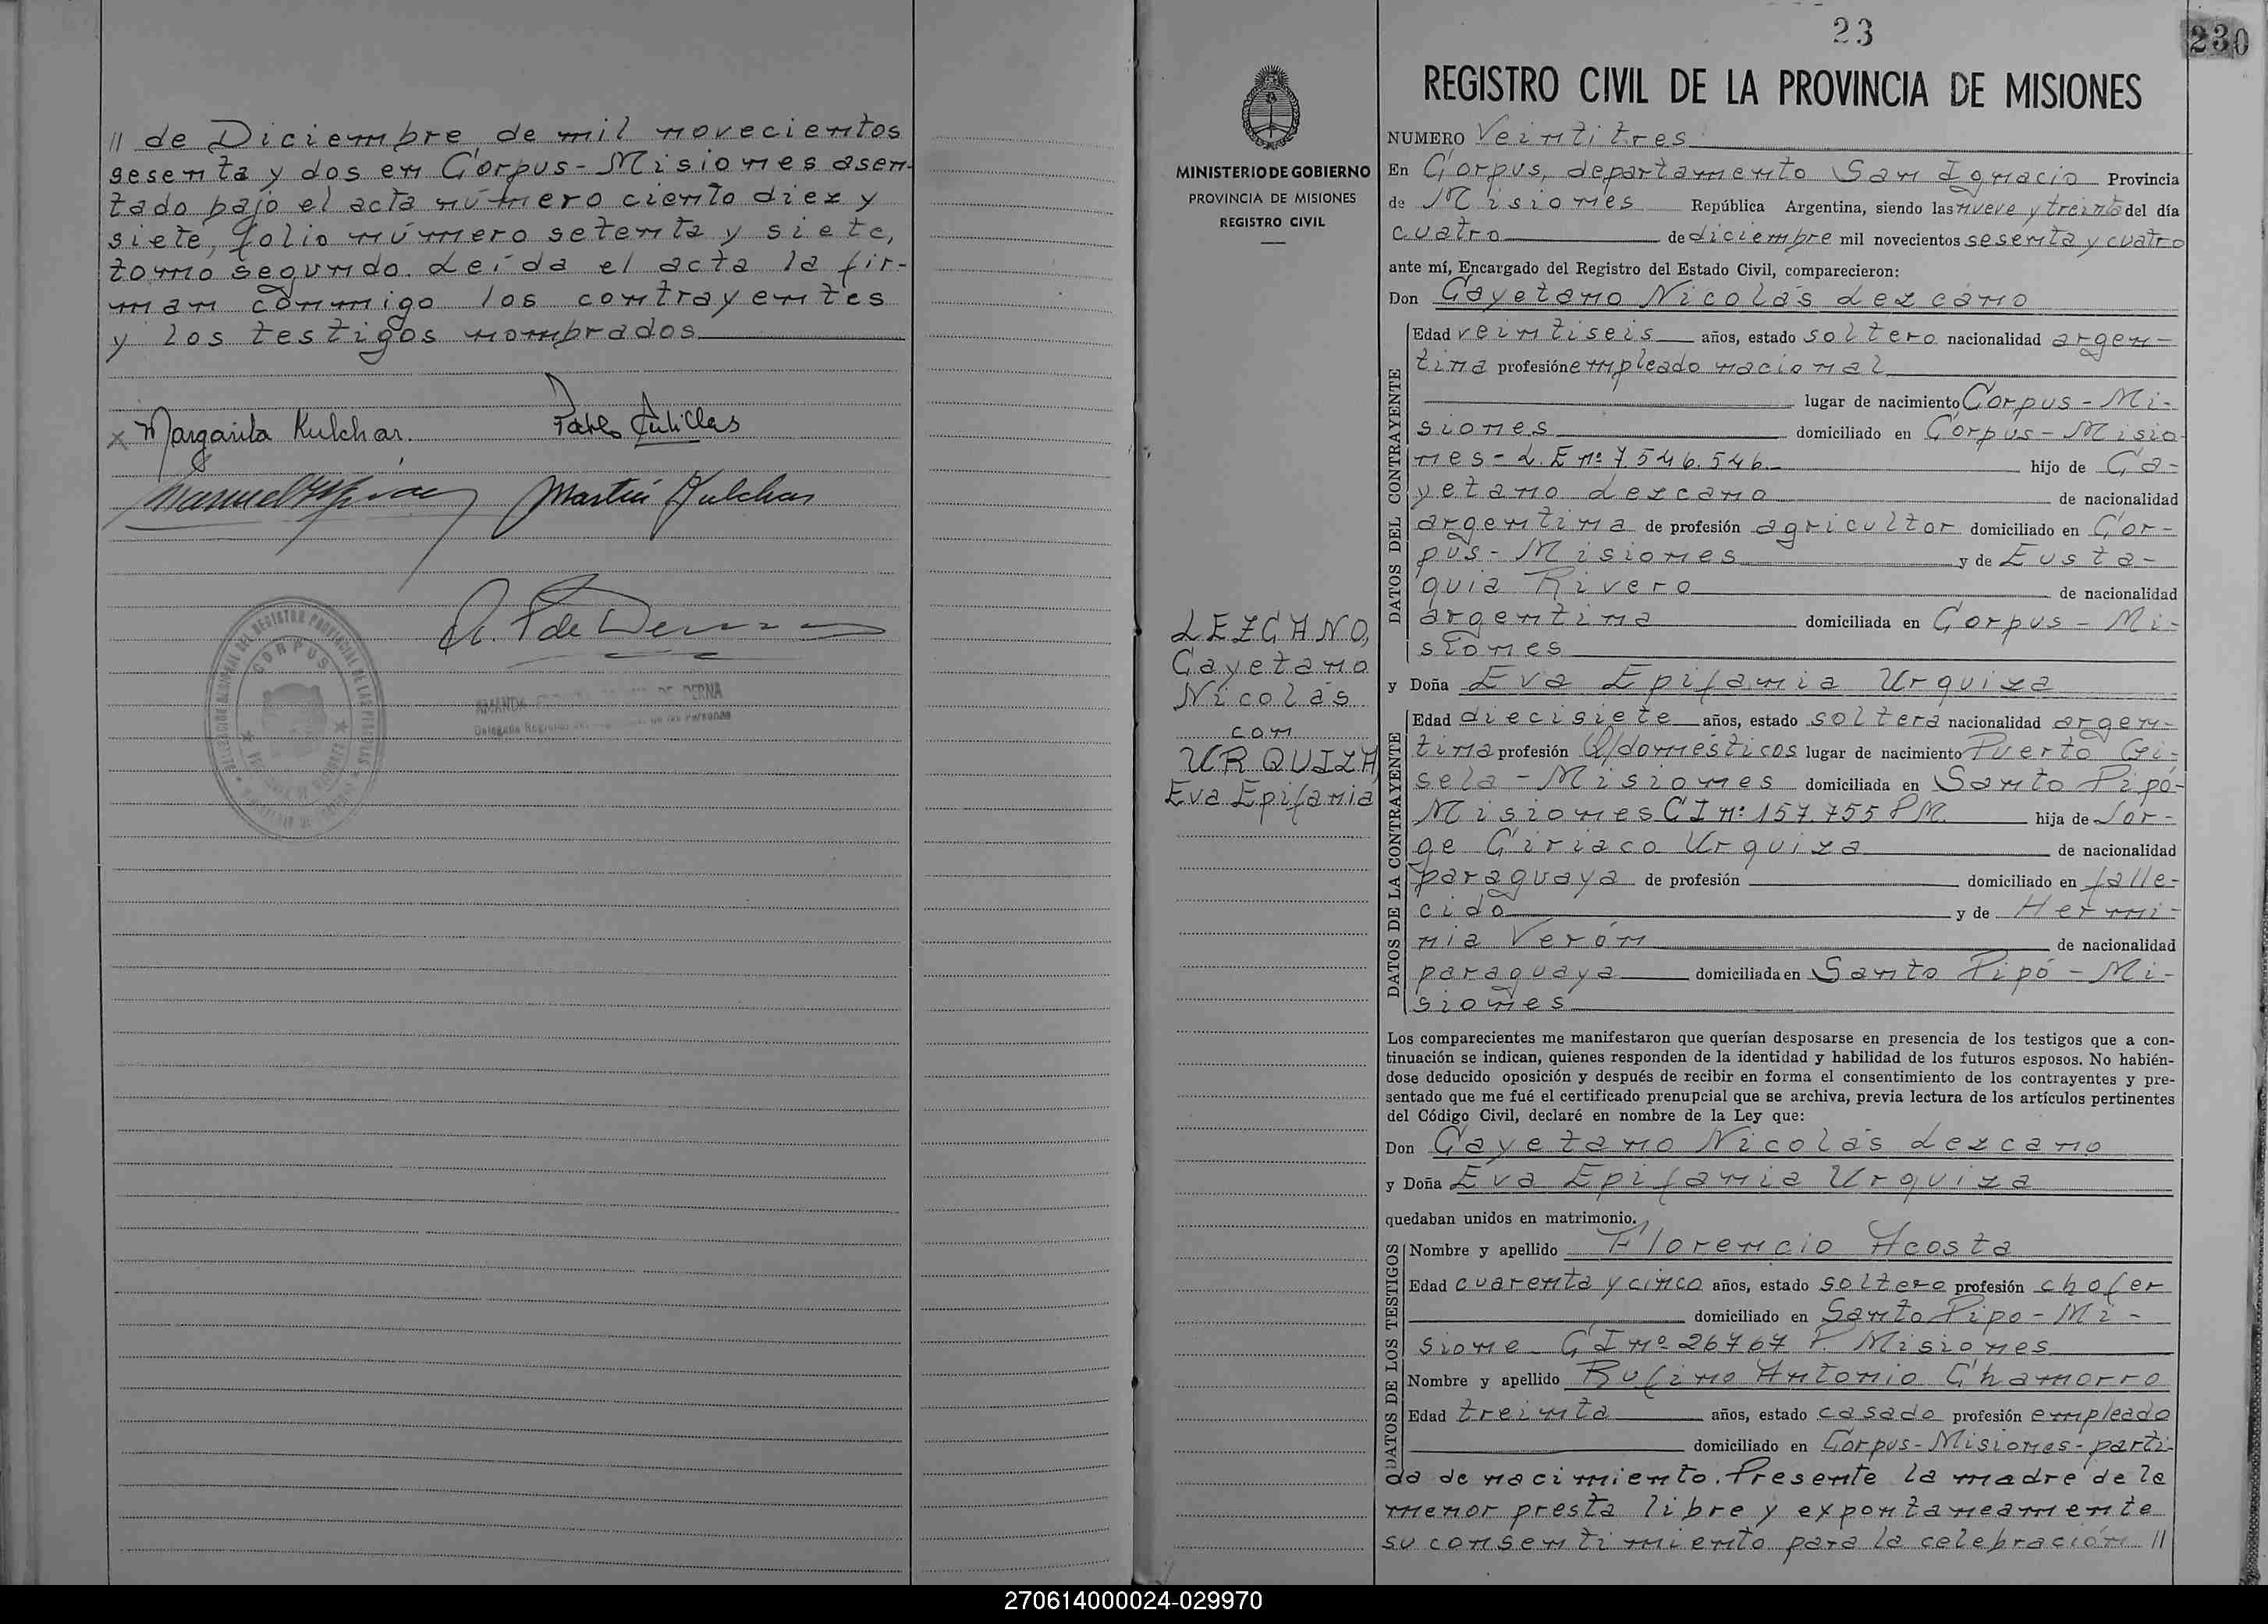 // de Diciembre de mil novecientos
sesenta y dos en Corpus-Misiones asen-
tado bajo el acta número ciento diez y
siete, folio número setenta y siete,
tomo segundo. Leída el acta la fir-
man conmigo los contrayentes
y los testigos nombrados
x Margarita Kulchar.
Martín Kulchar
CORPUS
DE DERNA
23
230
REGISTRO CIVIL DE LA PROVINCIA DE MISIONES
MINISTERIO DE GOBIERNO
PROVINCIA DE MISIONES
REGISTRO CIVIL
LEZCANO,
Cayetano
Nicolás
con
URQUIZA,
Eva Epifania
NUMERO Veintitres
En Corpus, departamento San Ignacio Provincia
de Misiones República Argentina, siendo las nueve y treinta del día
cuatro de diciembre mil novecientos sesenta y cuatro
ante mí, Encargado del Registro del Estado Civil, comparecieron:
Don Cayetano Nicolás Lezcano
DATOS DEL CONTRAYENTE
Edad veintiseis años, estado soltero nacionalidad argen-
tina profesión empleado nacional
lugar de nacimiento Corpus-Mi-
siones domiciliado en Corpus-Misio-
nes-L.E nº 7546.546. hijo de Ca-
yetano Lezcano de nacionalidad
argentina de profesión agricultor domiciliado en Cor-
pus-Misiones y de Eusta-
quia Rivero de nacionalidad
argentina domiciliada en Corpus-Mi-
siones
y Doña Eva Epifania Urquiza
DATOS DE LA CONTRAYENTE
Edad diecisiete años, estado soltera nacionalidad argen-
tina profesión Q/domésticos lugar de nacimiento Puerto Gi-
sela-Misiones domiciliada en Santo Pipó-
Misiones CI nº 157.755 PM. hija de Jor-
ge Ciriaco Urquiza de nacionalidad
paraguaya de profesión domiciliado en falle-
cido y de Hermi-
nia Verón de nacionalidad
paraguaya domiciliada en Santo Pipó-Mi-
siones
Los comparecientes me manifestaron que querían desposarse en presencia de los testigos que a con-
tinuación se indican, quienes responden de la identidad y habilidad de los futuros esposos. No habién-
dose deducido oposición y después de recibir en forma el consentimiento de los contrayentes y pre-
sentado que me fué el certificado prenupcial que se archiva, previa lectura de los artículos pertinentes
del Código Civil, declaré en nombre de la Ley que:
Don Cayetano Nicolás Lezcano
y Doña Eva Epifania Urquiza
quedaban unidos en matrimonio.
DATOS DE LOS TESTIGOS
Nombre y apellido Florencio Acosta
Edad cuarenta y cinco años, estado soltero profesión chofer
domiciliado en Santo Pipo-Mi-
sione CI nº 26767 P. Misiones
Nombre y apellido Rufino Antonio Chamorro
Edad treinta años, estado casado profesión empleado
domiciliado en Corpus-Misiones-parti-
da de nacimiento. Presente la madre de la
menor presta libre y expontaneamente
su consentimiento para la celebración //
270614000024-029970